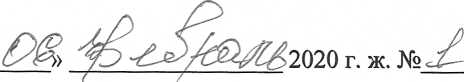 06» февраль 2020 г. ж. № 1